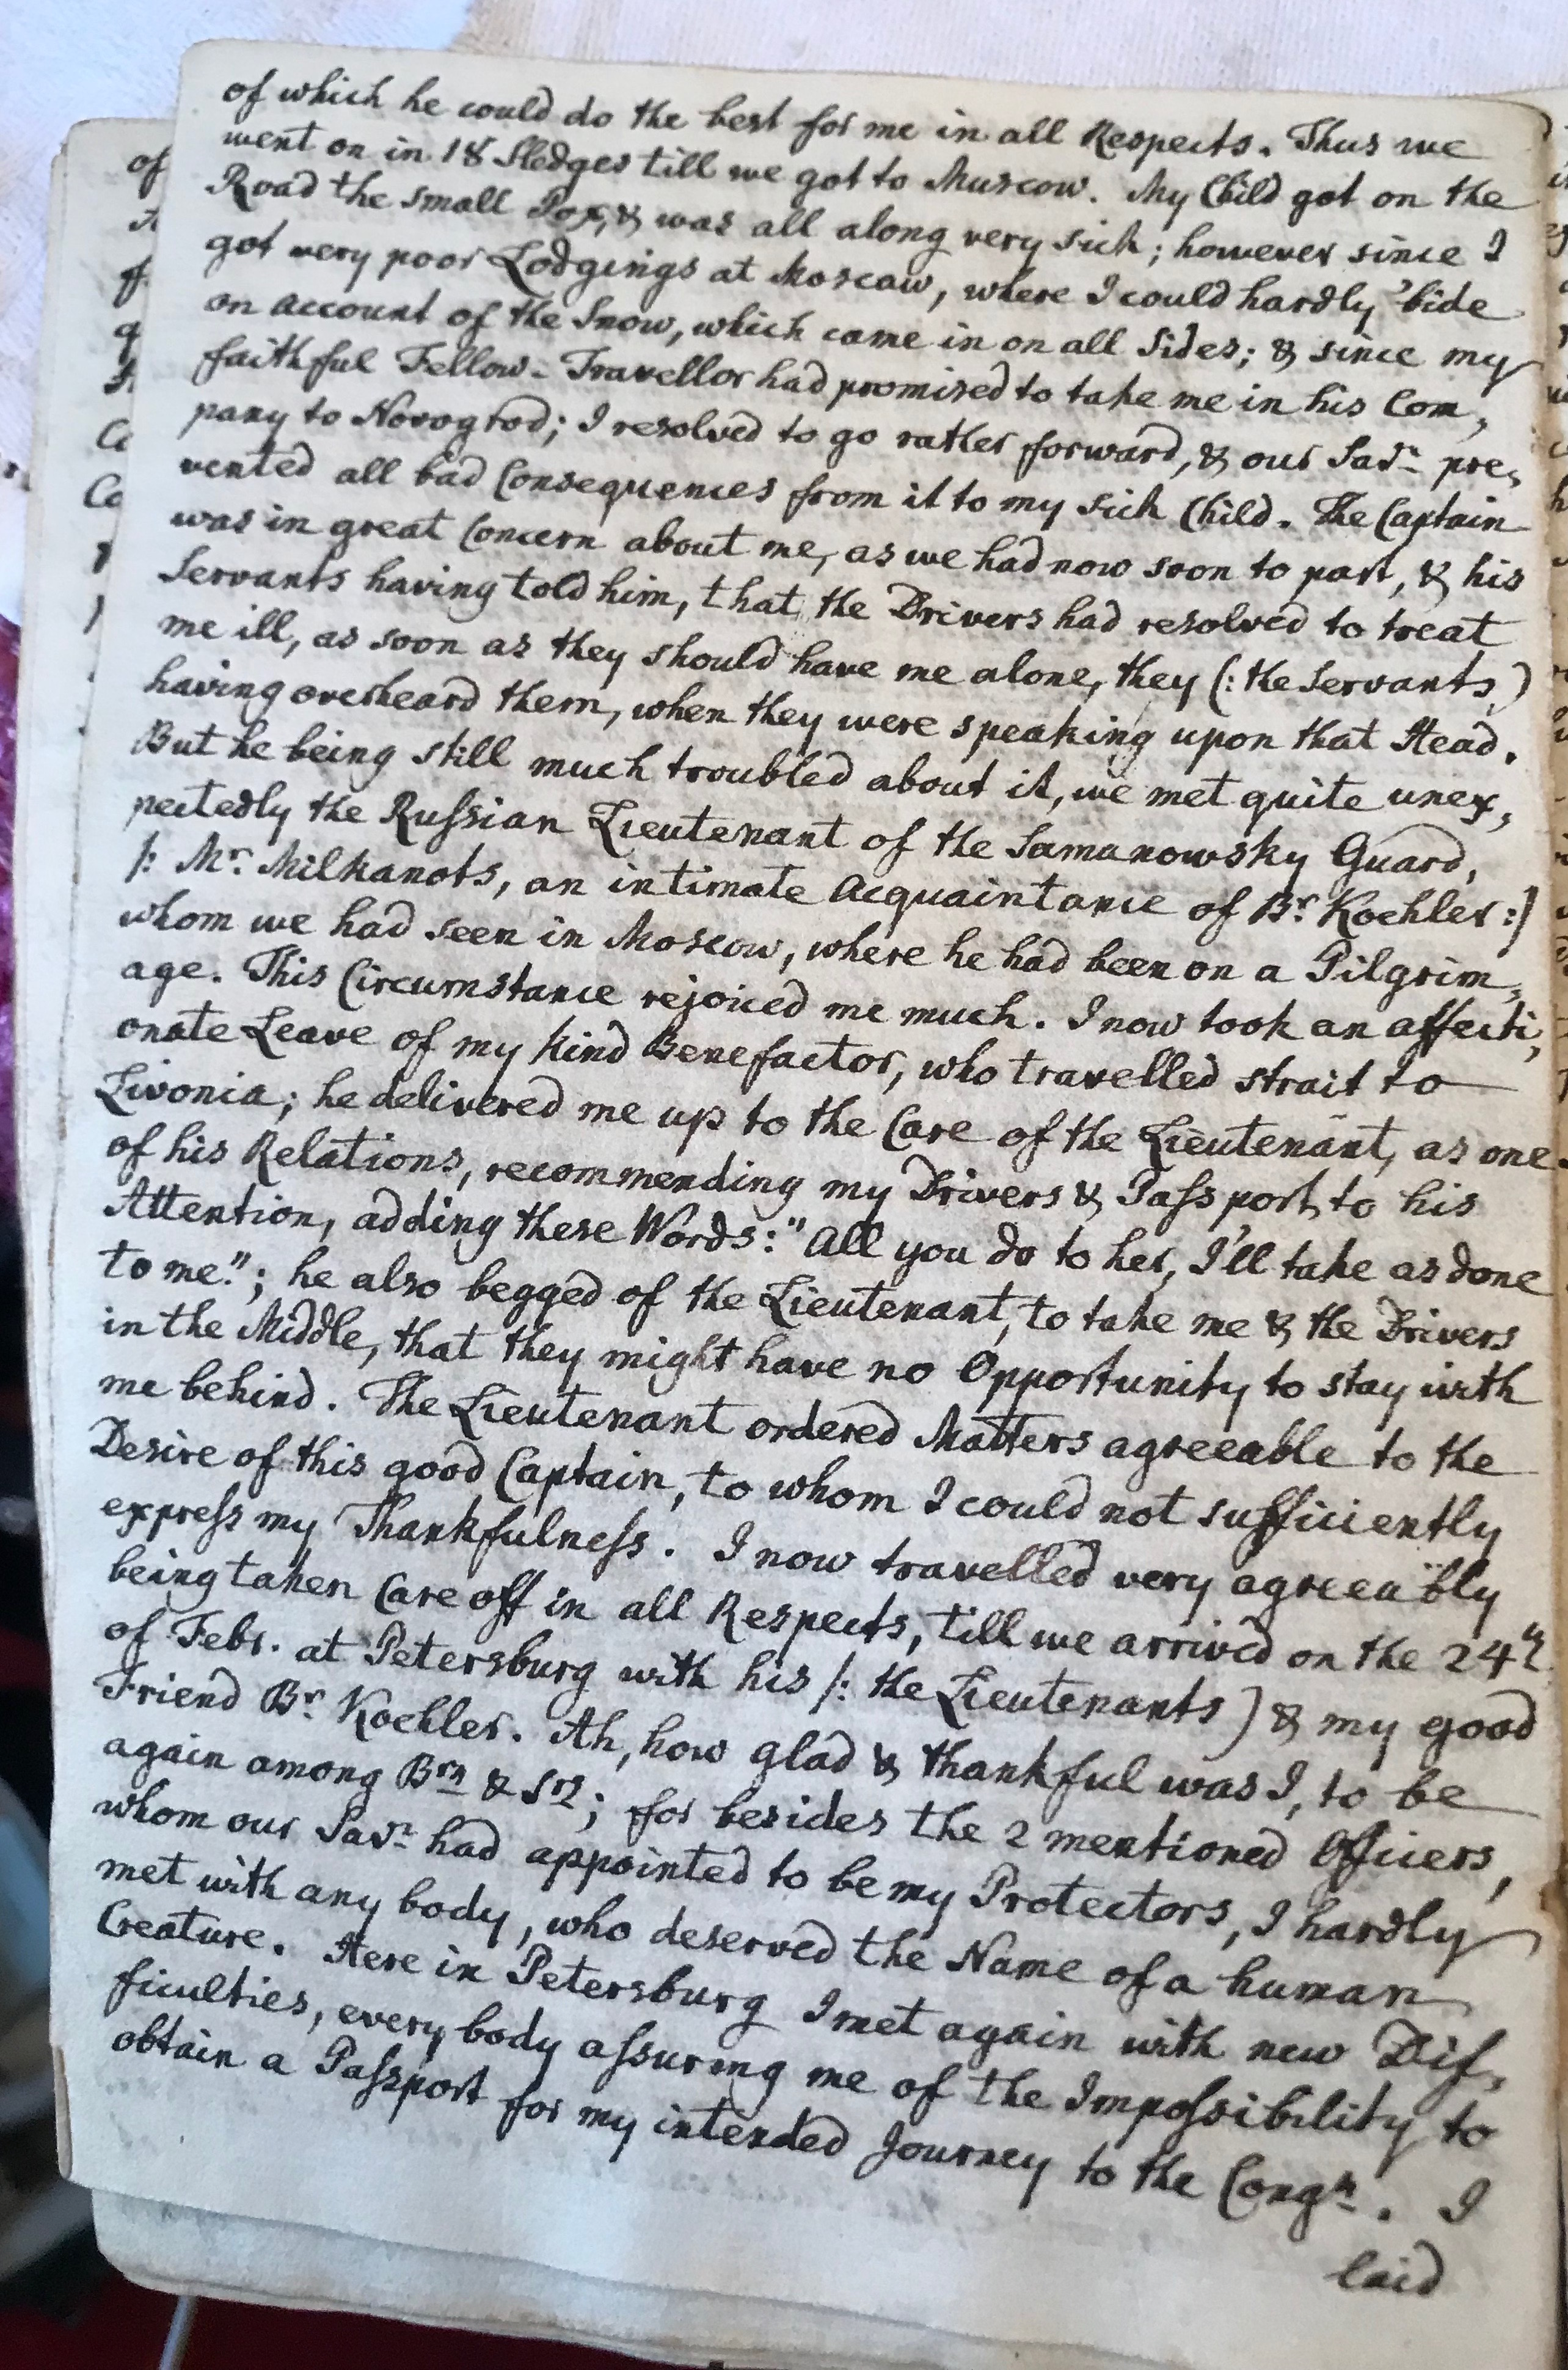 of which he could do the best for me in all Respects. Thus we
went on in 18 Sledges till we got to Muscow. My Child got on the
Road the small Pox, & was all along very sick; however since I
got very poor Lodgings at Moscaw, where I could hardly 'bide
on account of the Snow, which came in on all Sides; & since my
faithful Fellow-Travellor had promised to take me in his Com,
pany to Novogrod; I resolved to go rather forward, & our Savr pre,
vented all bad Consequences from it to my sick Child. The Captain
was in great Concern about me, as we had now soon to part, & his
Servants having told him, that the Drivers had resolved to treat
me ill, as soon as they should have me alone, they (: the Servants,)
having overheard them, when they were speaking upon that Head.
But he being still much troubled about it, we met quite unex,
pectedly the Ruſsian Lieutenant of the Samanowsky Guard,
/: Mr. Milkanots, an intimate Acquaintance of Br. Koehler :/
whom we had seen in Moscow, where he had been on a Pilgrim,
age. This Circumstance rejoiced me much. I now took an affecti,
onate Leave of my kind Benefactor, who travelled strait to
Livonia; he delivered me up to the Care of the Lieutenant, as one
of his Relations, recommending my Drivers & Paſsport, to his
Attention, adding these Words: "All you do to her, I'll take as done
to me."; he also begged of the Lieutenant, to take me & the Drivers
in the Middle, that they might have no Opportunity to stay with
me behind. The Lieutenant ordered Matters agreeable to the
Desire of this good Captain, to whom I could not sufficiently
expreſs my Thankfulneſs. I now travelled very agreeably
being taken Care off in all Respects, till we arrived on the 24th
of Febr. at Petersburg with his /: the Lieutenants ) & my good
Friend Br. Koehler. Ah, how glad & thankful was I, to be
again among Brn & Srs; for besides the 2 mentioned Officers,
whom our Savr had appointed to be my Protectors, I hardly
met with any body, who deserved the Name of a human
Creature. Here in Petersburg I met again with new Dif,
ficulties, every body aſsuring me of the Impoſsibility to
obtain a Paſsport for my intended Journey to the Congn. I
laid